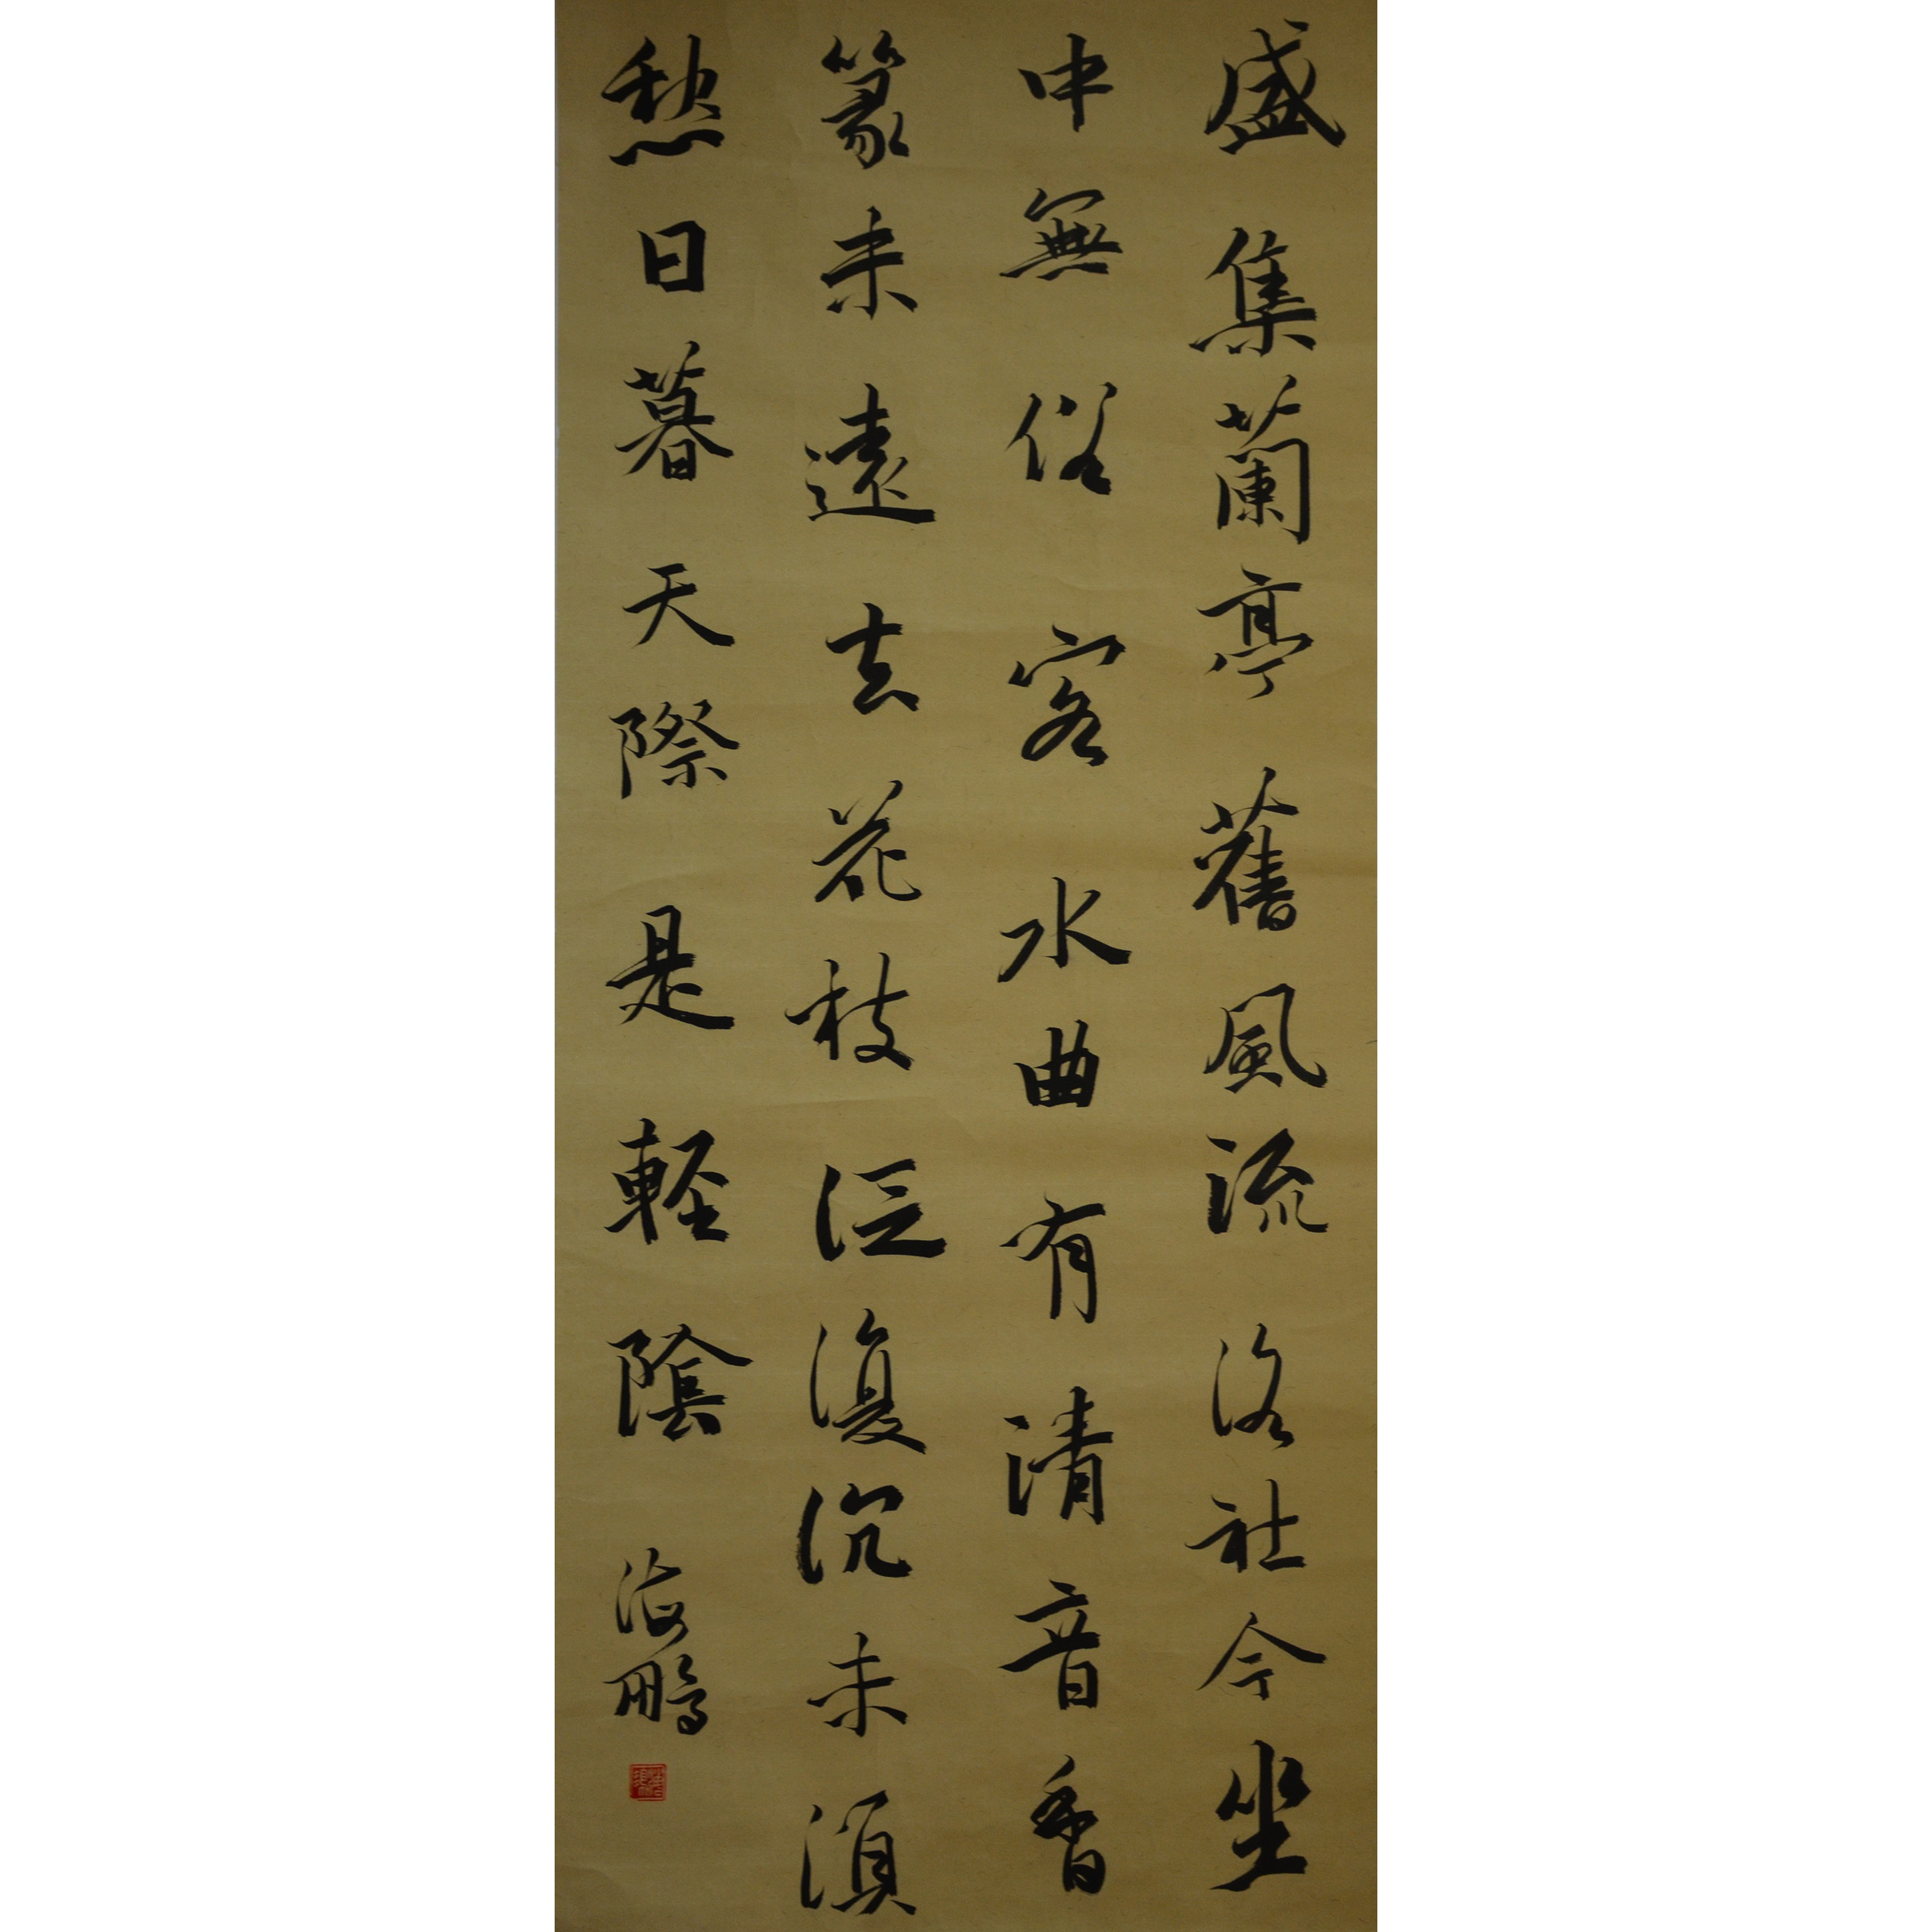 盛集蘭亭舊風流洛社今坐
中無俗客水曲有清音香
篆未遠去花枝泛復沉未須
愁日暮天際是輕陰
海鵬